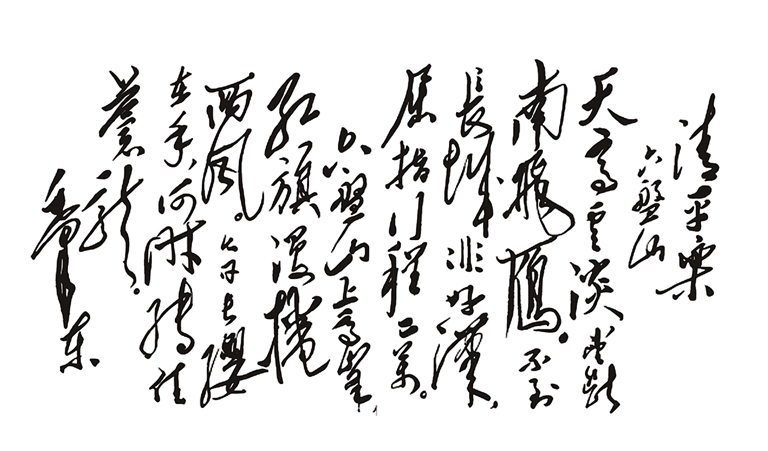 清平樂
六盤山
天高雲淡望斷
南飛鴈。不到
長城非好漢,
屈指行程二萬。
六盤山上高峯,
紅旗漫捲
西風。今日長纓
在手,何時縛住
蒼龍。
毛澤東